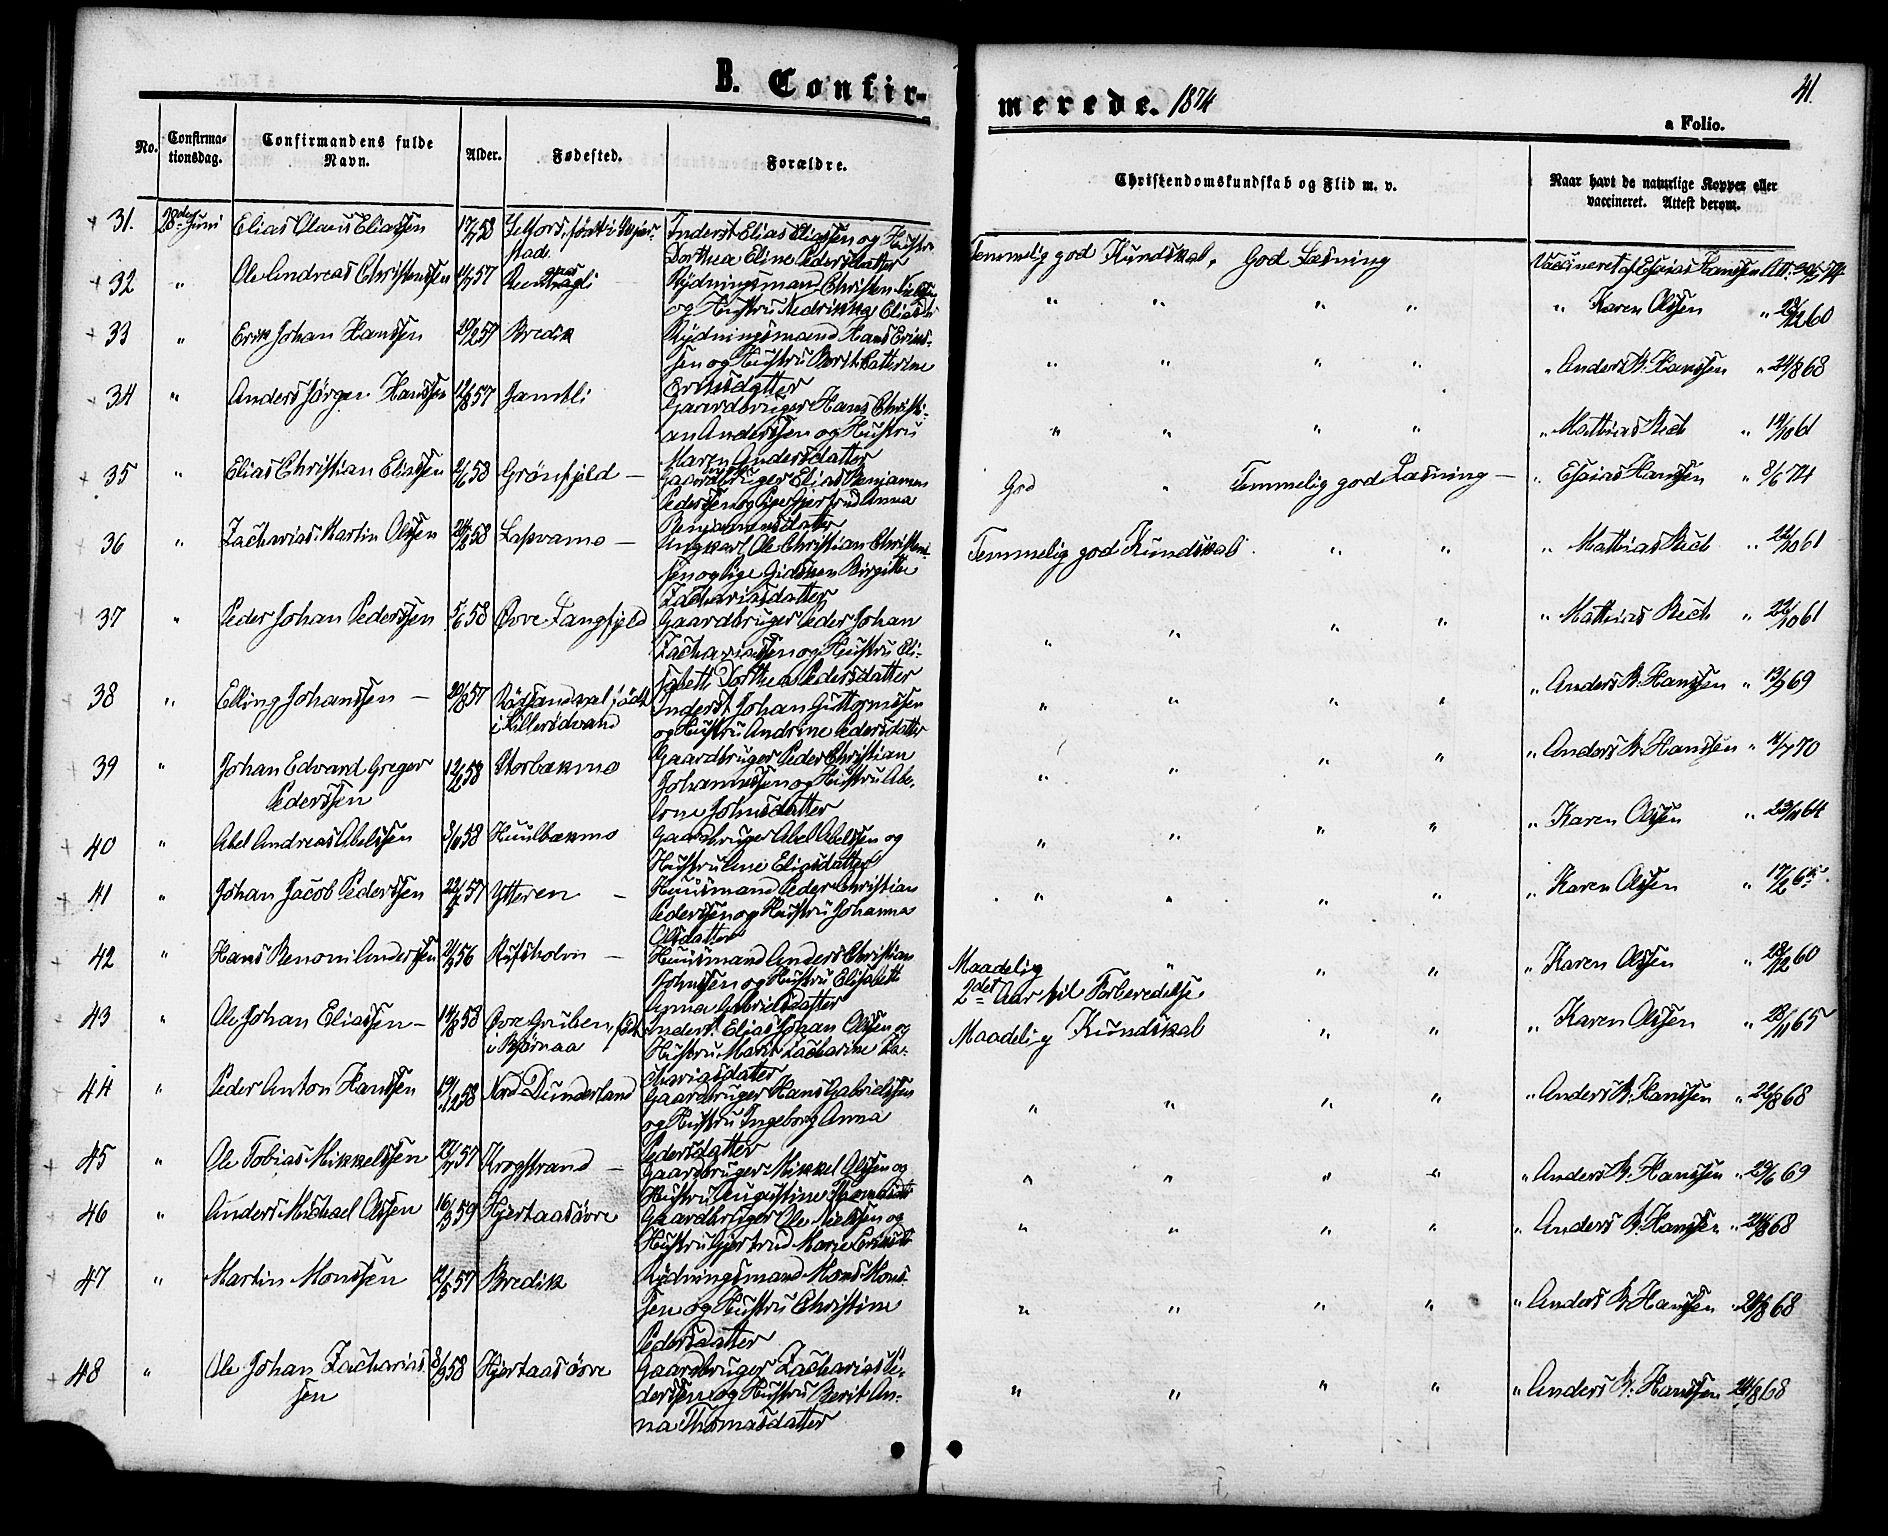 B. Confir-
merede. 1874
41.
a Folio.
No.
Confirma-
tionsdag.
Confirmandens fulde
Navn.
Alder.
Fødested.
Forældre.
Christendomskundskab og Flid m. v.
Naar havt de naturlige Kopper eller
vaccineret. Attest derom.
31. 28de Juni Elias Olaus Eliassen 58 Inderst Elias Eliassen og Hustru
Dorthea Eline Pedersdatter
Temmelig god Kundskab, God Læsning Vaccineret af Esaias Hanssen Att. 74
32 " Ole Andreas Christenssen 57 Rydningsmand Christen
og Hustru Eliasd.
" " " " " Karen Olssen " 28/12 60
33 " Erik Johan Hanssen 57 Bredik Rydningsmand Hans Eriks-
sen og Hustru Berit Catherine
Eriksdatter
" " " " " Anders B. Hanssen " 24/8 68
34 " Anders Jörgen Hanssen 57 Jamtli Gaardbruger Hans Christi-
an Anderssen og Hustru
Maren Andersdatter
" " " " " Mathias Bech " 61
35 " Elias Christian Eliassen 58 Grönfjeld — Gaardbruger Elias Benjamin
Pederssen og Pige Gjertrud Anna
Benjaminsdatter
God " Temmelig god Læsning — " Esaias Hanssen " 8/6 74
36 " Zacharias Martin Olssen 58 — Ungkarl Ole Christian Christen-
sen og Pige Birgitte
Zachariasdatter
Temmelig god Kundskab " " " Mathias Bech " 22/10 61
37 " Peder Johan Pederssen 5/6 58 Øvre Langfjeld Gaardbruger Peder Johan
Zachariassen og Hustru Eli-
sabeth Dorthea Pedersdatter
" " " " " Mathias Bech " 22/10 61
38 " Elling Johanssen — 57 født
i
Inderst Johan Guttormssen
og Hustru Andrine Pedersdatter
" " " " " Anders B. Hanssen " 69
39 " Johan Edvard Greger
Pederssen
58 Storbækmo Gaardbruger Peder Christian
Johannessen og Hustru Abe-
lone Johnsdatter
" " " " " Anders B. Hanssen " 70
40 " Abel Andreas Abelssen 58 Gaardbruger Abel Abelssen og
Hustru Ane Eliasdatter
" " " " " Karen Olssen " 64
41 " Johan Jacob Pederssen 57 Ytteren — Huusmand Peder Christian
Pederssen og Hustru Johanna
Olsdatter
" " " " " Karen Olssen " 65
42 " Hans Benoni Anderssen 56 — Huusmand Anders Christian
Johnssen og Hustru Elisabeth
Anna Gabrielsdatter
Maadelig " " " " Karen Olssen " 28/12 60
2det Aar til Forberedelse
43 " Ole Johan Eliassen — 14/8 58 Øvre Gruben, født
i Bjørnaa
Inderst Elias Johan Olssen og
Hustru Marit Zacharine Za-
chariasdatter
Maadelig Kundskab " " " Karen Olssen " 28/11 65
44 " Peder Anton Hanssen 58 Nord Dunderland Gaardbruger Hans Gabrielssen
og Hustru Ingeborg Anna
Pedersdatter
" " " " " Anders B. Hanssen " 22/8 68
45 " Ole Tobias Mikkelssen 57 Krogstrand — Gaardbruger Mikkel Olssen og
Hustru Augustine
" " " " " Anders B. Hanssen " 29/6 69
46 " Anders Michael Olssen 16/3 59 Hjertaas övre Gaardbruger Ole Nielssen og
Hustru Gjertrud Marie
" " " " " Anders B. Hanssen " 24/8 68
47 " Martin Monssen 57 Bredik Rydningsmand Mons Mons-
sen og Hustru Christine
Pedersdatter
" " " " " Anders B Hanssen " 24/8 68
48 " Ole Johan Zacharias-
sen
58 Hjertaas övre Gaardbruger Zacharias Pe-
derssen og Hustru Berit An-
na Thomasdatter
" " " " " Anders B. Hanssen 24/8 68